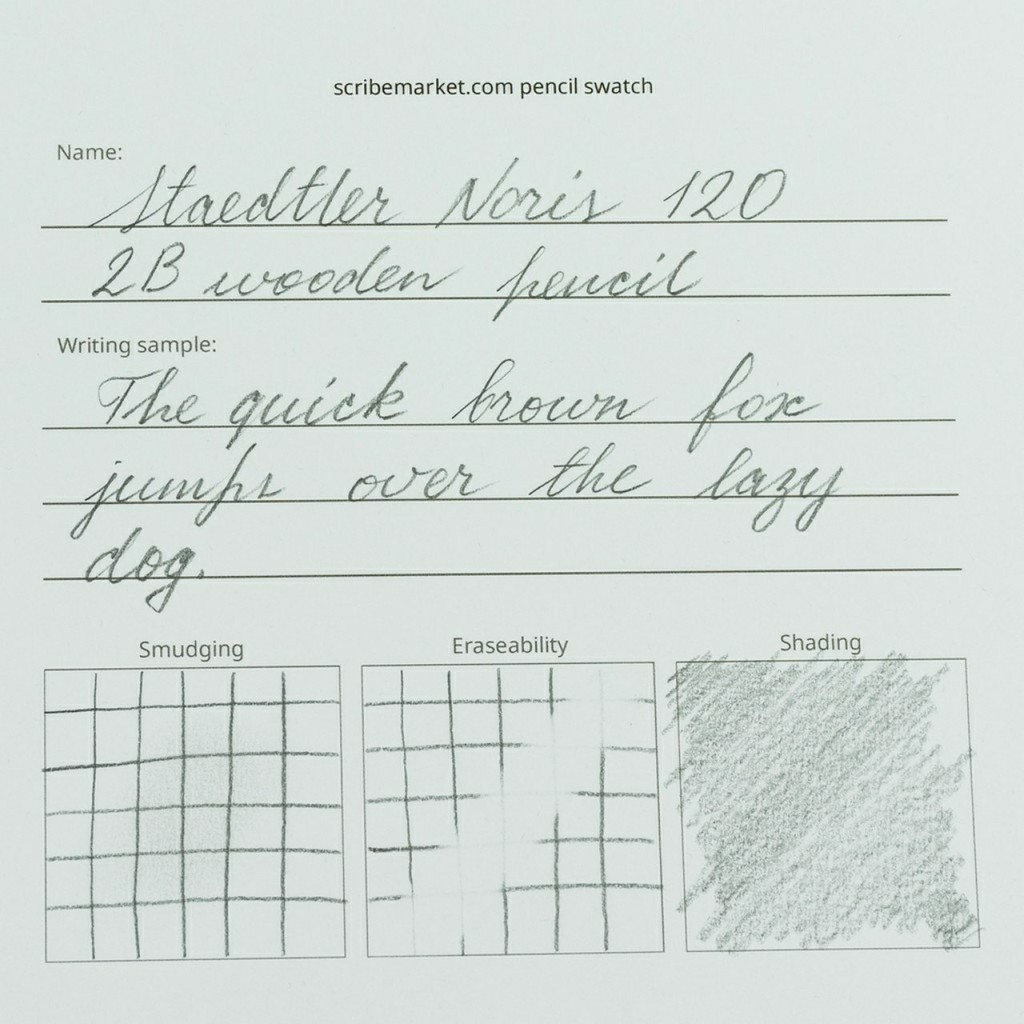 scribemarket.com pencil swatch
Name:
Staedtler Noris 120
2B wooden pencil
Writing sample:
The quick brown fox
jumps over the lazy
dog.
Smudging Eraseability Shading